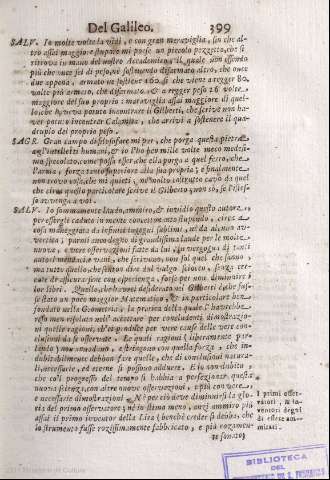 Del Galileo. 399
SALV. Io molte volte la vidi, e con gran meraviglia, sin che al-
tro assai maggior stupore mi porse un piccolo pezzetto, che si
ritrova in mano del nostro Accademico, il quale non essendo
più che once sei di peso, nè sostenendo disarmato altro, che once
due appena, armato ne sustiene 160. sì che viene a regger 80.
volte più armato, che disarmato, e a regger peso 26 volte
maggiore del suo proprio: maraviglia assai maggiore di quel-
lo, che haveva potuto incontrare il Gilberti, che scrive non ha-
ver potuto incontrar Calamita, che arrivi a sostenere il qua-
druplo del proprio peso.
SAGR. Gran campo di filosofare mi par, che porga questa pietra
a gl'intelletti humani, & io l'ho ben mille volte meco medesi-
mo specolato, come possa esser, che ella porga a quel ferro, che
l'arma, forza tanto superiore alla sua propria; e finalmente
non trovo cosa, che mi quieti; nè molto costrutto cavo da quel
che circa questo particolare scrive il Gilberti: non so, se l'istes-
so avvenga a voi.
SALV. Io sommamente laudo, ammiro, & invidio questo autore,
per essergli caduto in mente concetto tanto stupendo, circa a
cosa maneggiata da infiniti ingegni sublimi, nè da alcuno av-
vertita; parmi anco degno di grandissima laude per le molte
nuove, e vere osservazioni fatte da lui, in vergogna di tanti
autori mendaci e vani, che scrivono, non sol quel che sanno,
ma tutto quello, che senton dire dal vulgo sciocco, senza cer-
care di assicurarsene con esperienza, forse per non diminuire i
lor libri. Quello, che havrei desiderato nel Gilberti è, che fus-
se stato un poco maggior Matematico, & in particolare ben
fondato nella Geometria, la pratica della quale l'havrebbe
reso men risoluto nell'accettare per concludenti dimostrazio-
ni quelle ragioni, ch'ei produce per vere cause delle vere con-
clusioni da se osservate. Le quali ragioni (liberamente par-
lando) non annodano, & stringono con quella forza, che in-
dubitabilmente debbon fare quelle, che di conclusioni natura-
li, necessarie, ed eterne si possono addurre. E io non dubito,
che co'l progresso del tempo si habbia a perfezionar questa
nuova scienza, con altre nuove osservazioni, e più con vere,
e necessarie dimostrazioni. Nè per ciò deve diminuirsi la glo-
ria del primo osservatore; nè io stimo meno, anzi ammiro più
assai il primo inventor della Lira (benchè creder si debba, che
lo strumento fusse rozissimamente fabbricato, e più rozamen-
te sonato)
I primi osser-
vatori, & in-
ventori degni
di essere am-
mirati.
BIBLIOTECA